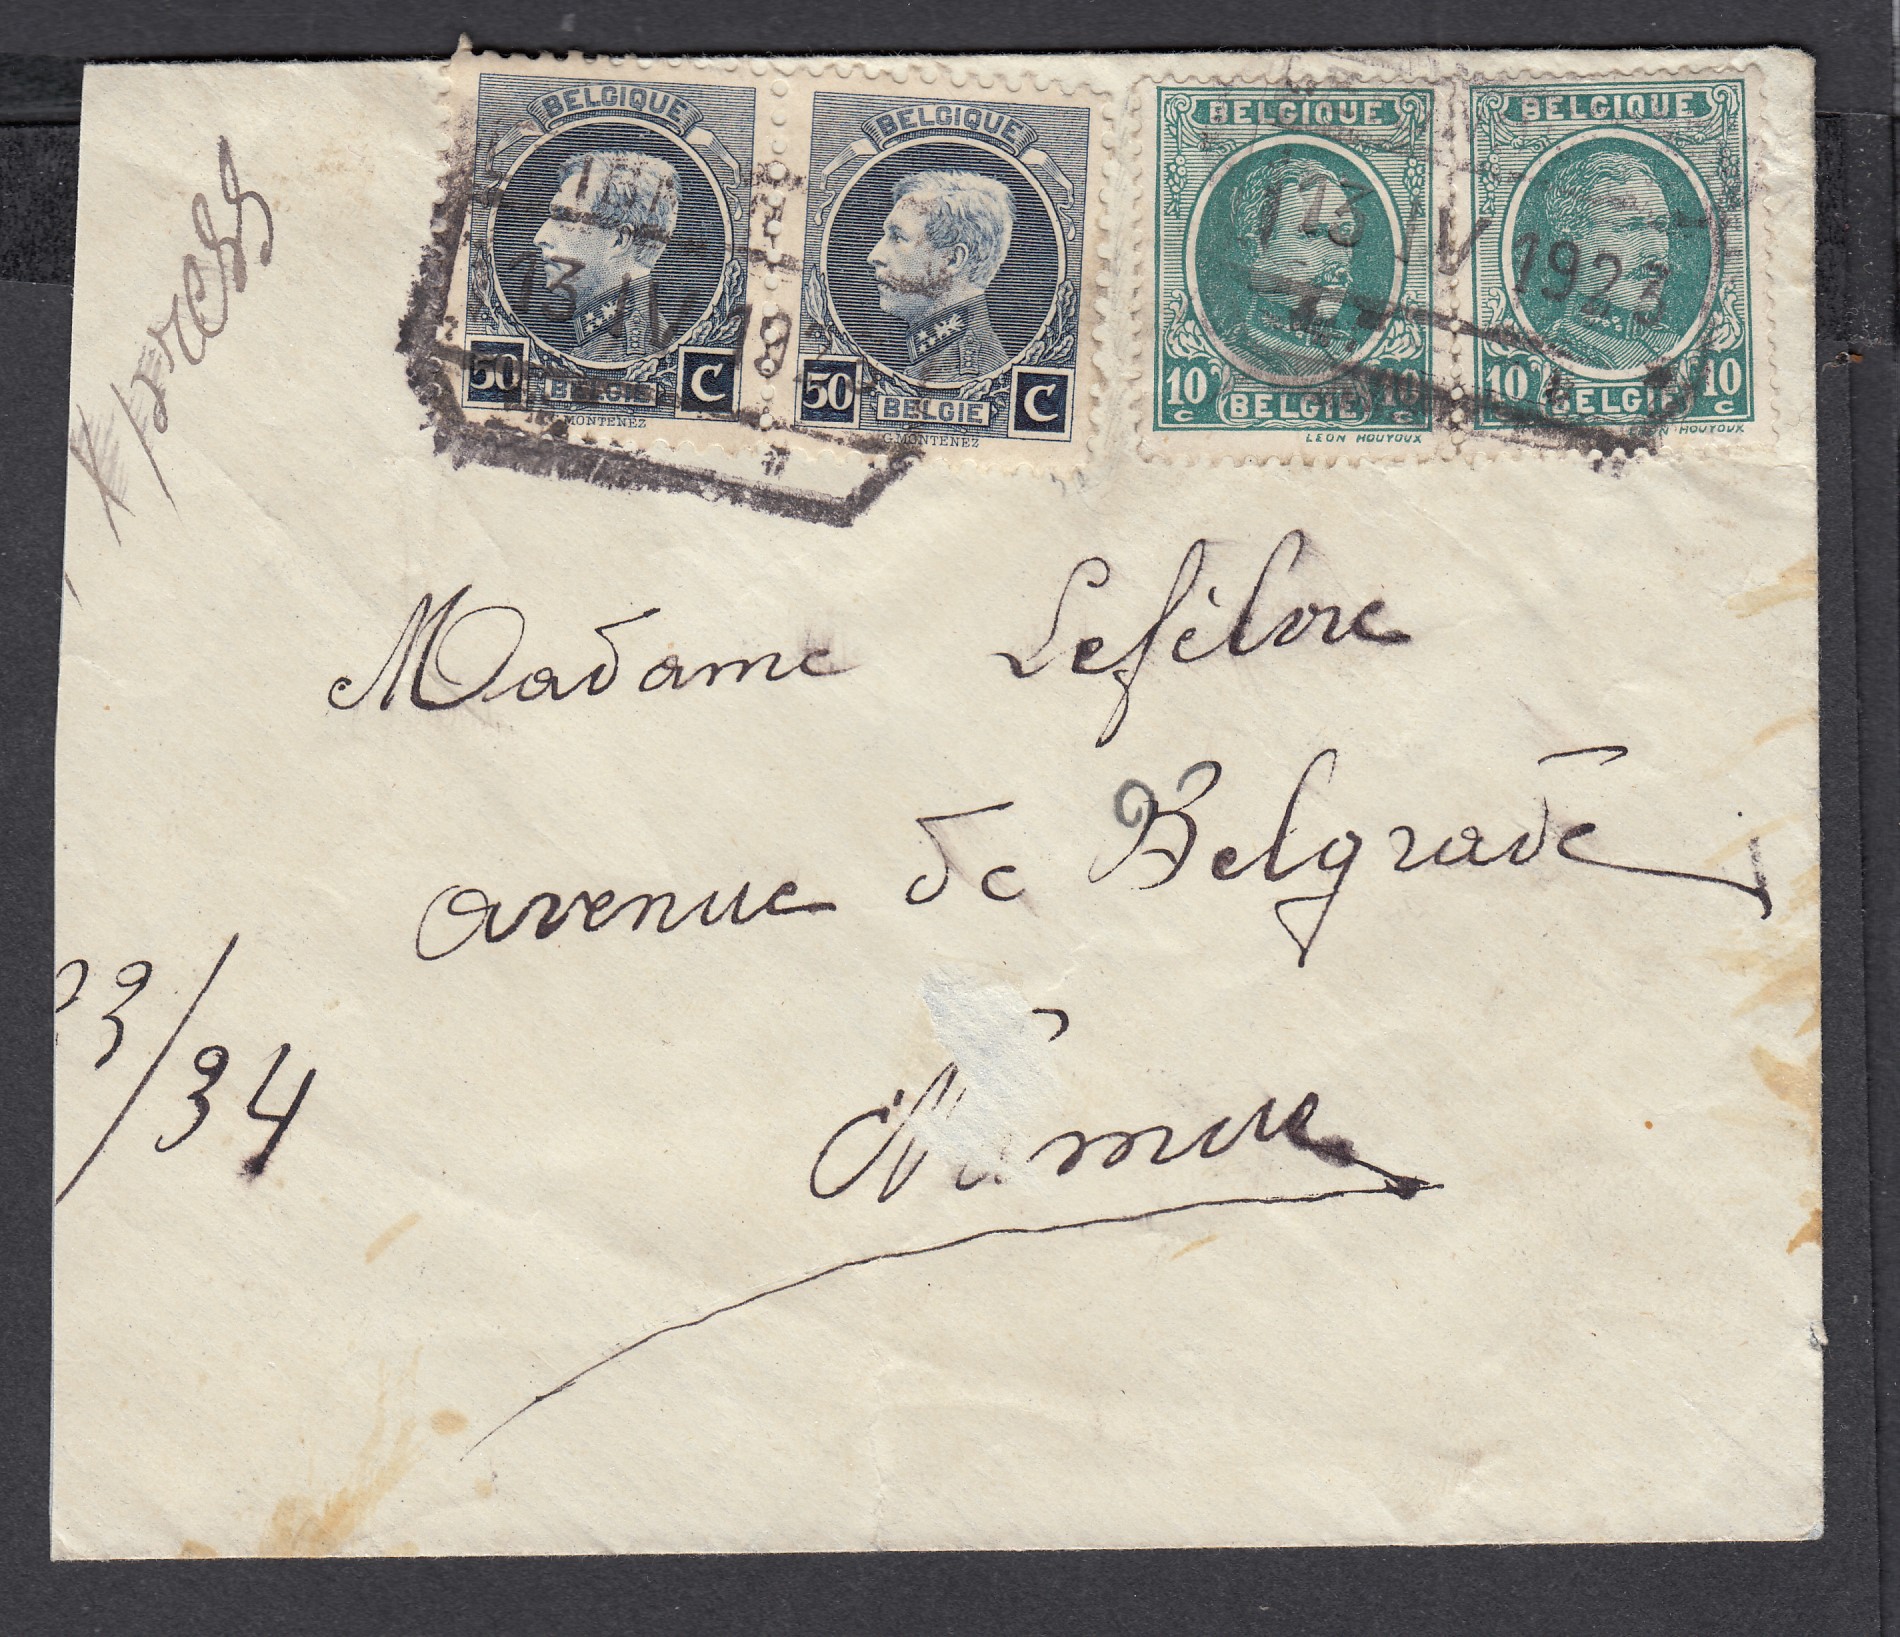 BELGIQUE BELGIQUE BELGIQUE BELGIQUE
13 IV 13 IV 1923
50 C 50 C 10 10 10 10
BELGIE BELGIE BELGIE BELGIE
G.MONTENEZ G.MONTENEZ LEON HOUYOUX LEON HOUYOUX
Xpress
Madame
avenue de Belgrade
23/34
Namur